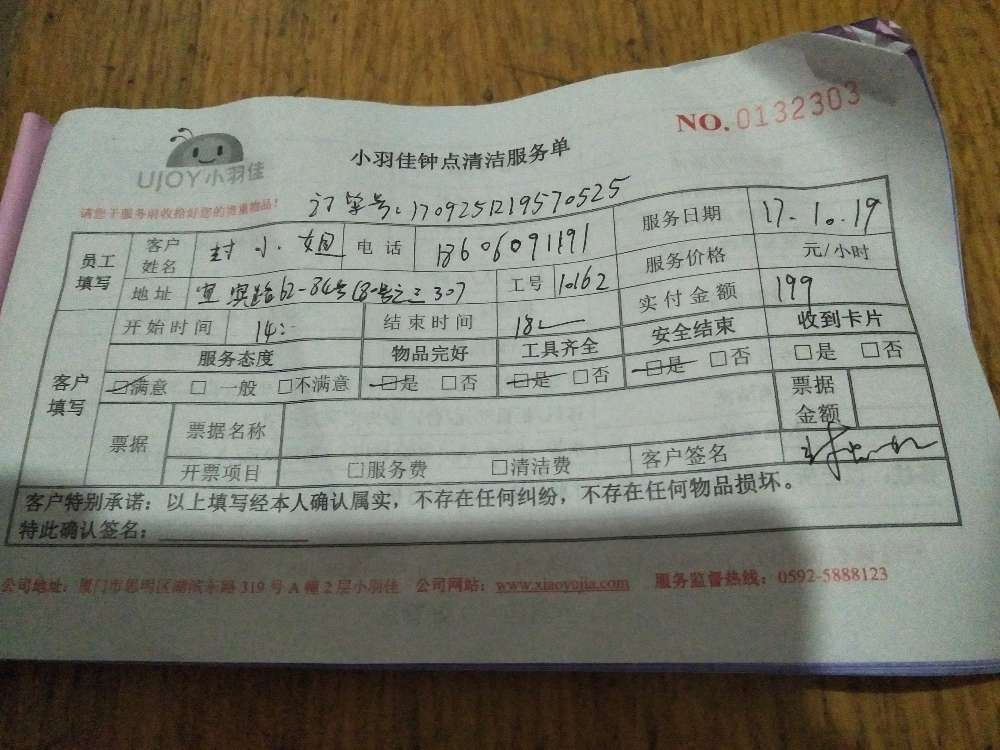 NO.0132303
UJOY小羽佳
小羽佳钟点清洁服务单
请您于服务前收拾好您的贵重物品!
订单号:1709251219570525
员工填写 客户姓名 封小姐 电话 18606091191 服务日期 17.10.19
地址 宜宾路62-84号 307 工号 10162 服务价格 元/小时
实付金额 199
客户填写 开始时间 14: 结束时间 18 安全结束 收到卡片
服务态度 物品完好 工具齐全 □是 □否 □是 □否
□满意 □一般 □不满意 □是 □否 □是 □否
票据 票据名称 票据金额
开票项目 □服务费 □清洁费 客户签名
客户特别承诺:以上填写经本人确认属实,不存在任何纠纷,不存在任何物品损坏。
特此确认签名:
公司地址:厦门市思明区湖滨东路319号A幢2层小羽佳 公司网站:www.xiaoyujia.com 服务监督热线:0592-5888123